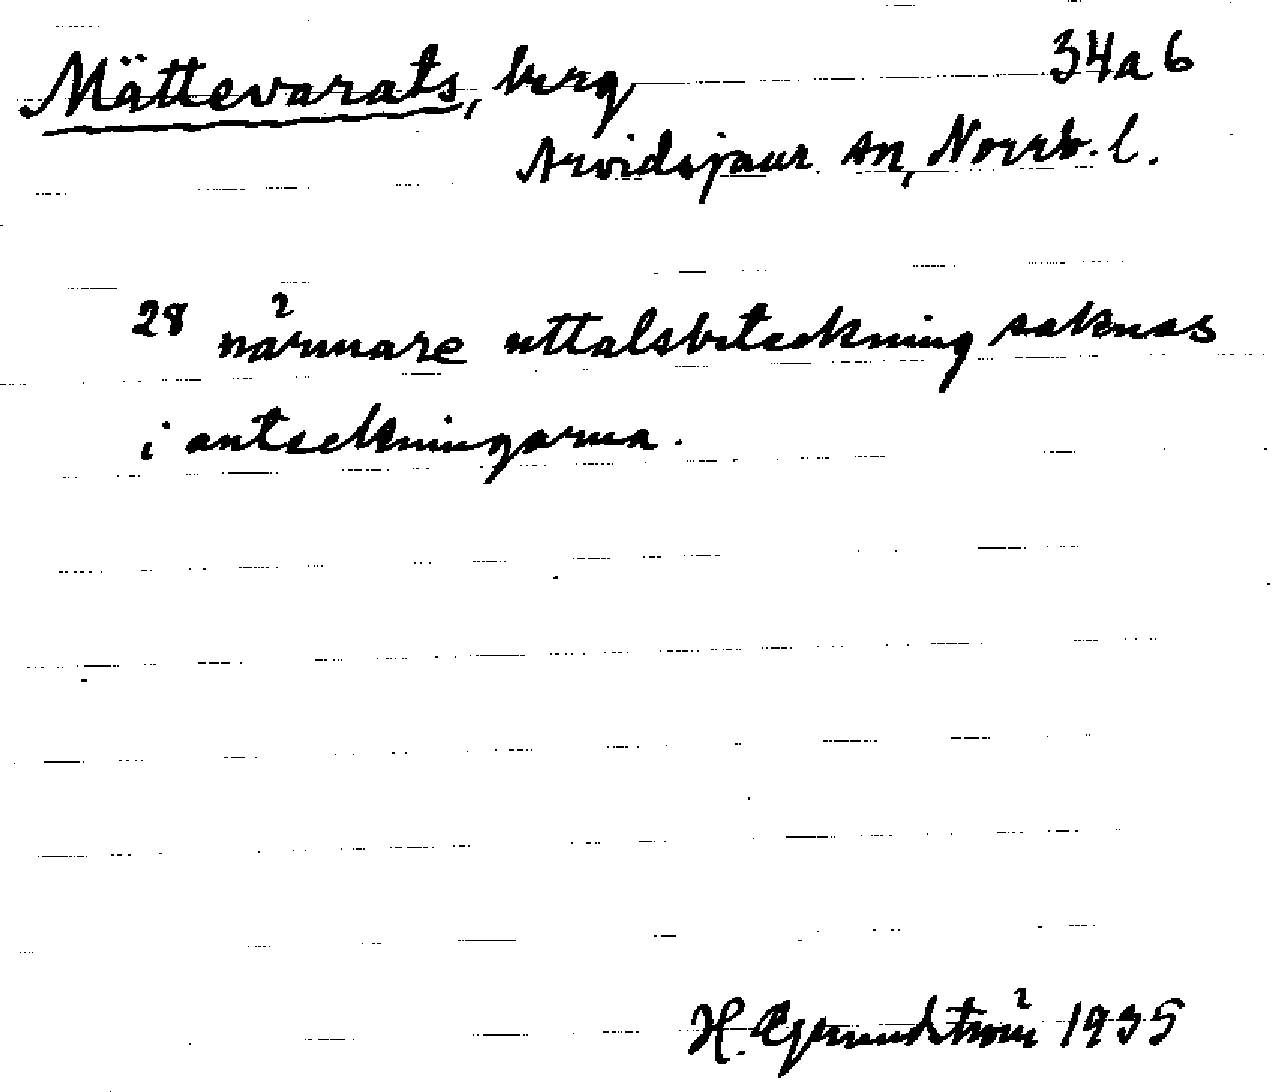 Mättevarats, berg 34a6
Arvidsjaur sn, Norrb. l.
28 närmare uttalsbeteckning saknas
i anteckningarna.
H. Grundström 1935